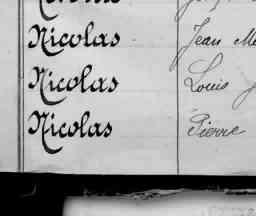 Nicolas Jean
Nicolas Louis
Nicolas Pierre